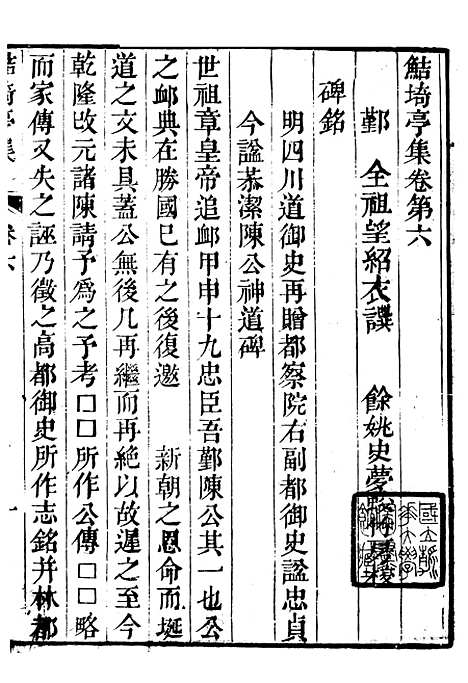 鮚埼亭集卷第六
鄞　全祖望紹衣譔　　餘姚史夢
碑銘
明四川道御史再贈都察院右副都御史諡忠貞
今諡恭潔陳公神道碑
世祖章皇帝追卹甲申十九忠臣吾鄞陳公其一也公
之卹典在勝國已有之後復邀　新朝之恩命而埏
道之文未具蓋公無後凡再繼而再絕以故遲之至今
乾隆改元諸陳請予爲之予考□□所作公傳□□略
而家傳又失之誣乃徵之高都御史所作志銘并林都
鮚埼亭集
卷六
一